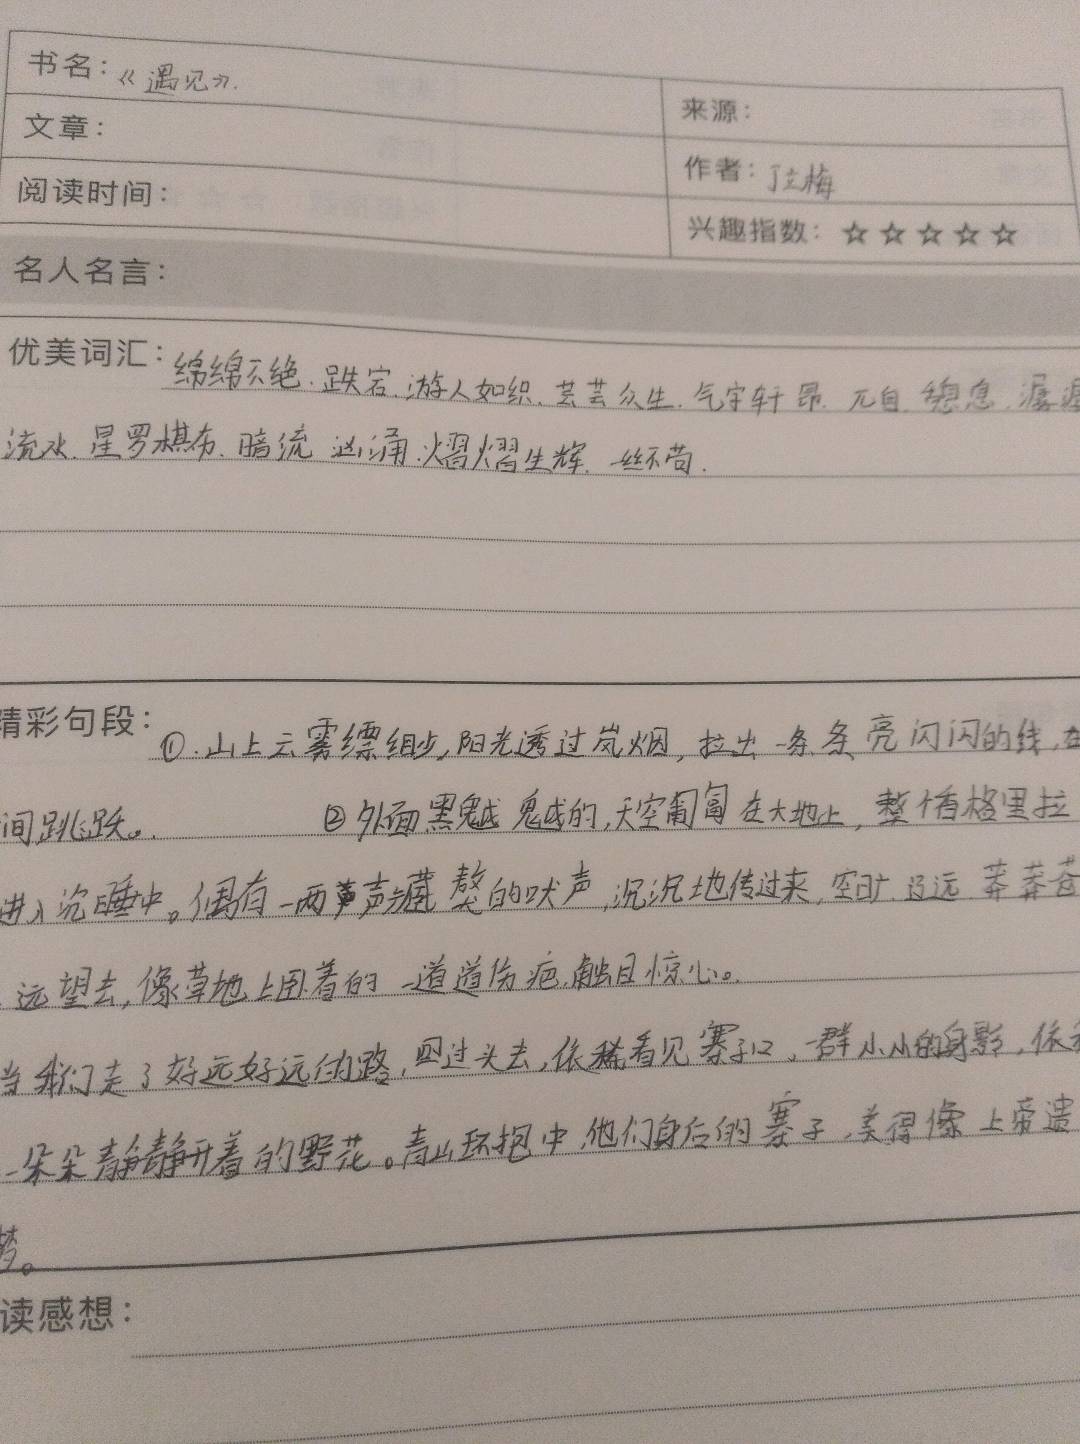 书名：《遇见》.
来源：
文章：
作者：丁立梅
阅读时间：
兴趣指数：☆☆☆☆☆
名人名言：
优美词汇：绵绵不绝.跌宕.游人如织.芸芸众生.气宇轩昂.兀自.憩息.潺潺
流水.星罗棋布.暗流汹涌.熠熠生辉.一丝不苟.
精彩句段：①.山上云雾缥缈,阳光透过岚烟,拉出一条条亮闪闪的线,在
间跳跃。. ②外面黑魆魆的,天空匍匐在大地上,整个香格里拉
进入沉睡中。偶有一两声藏獒的吠声,沉沉地传过来,空旷.辽远.莽莽苍
远望去,像草地上卧着的一道道伤疤,触目惊心。
当我们走了好远好远的路,回过头去,依稀看见寨子口,一群小小的身影,依
一朵朵静静开着的野花。青山环抱中,他们身后的寨子,美得像上帝遗
梦。
读感想：